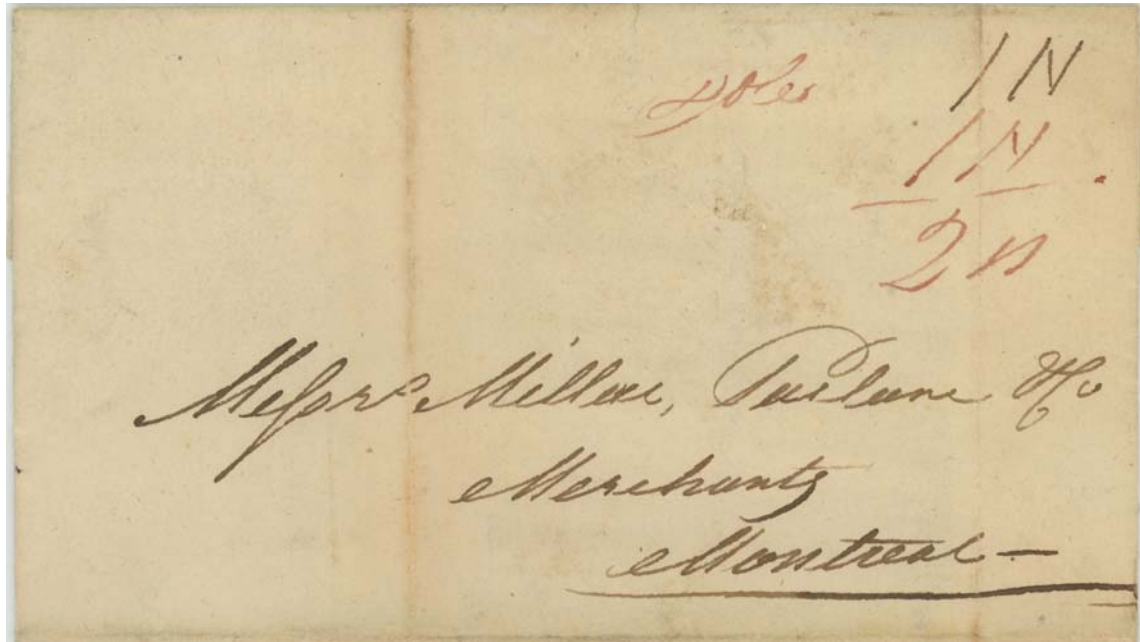 1 N
1 N
2 N
Messrs Millar, Parlane & Co
Merchants
Montreal —